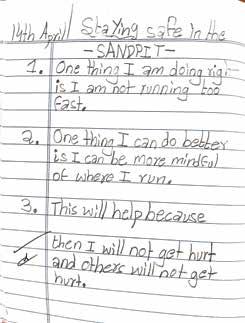 14th April/ Staying safe in the
- SANDPIT -
1. One thing I am doing righ
is I am not running too
fast.
2. One thing I can do better
is I can be more mindful
of where I run.
3. This will help because
then I will not get hurt
and others will not get
hurt.